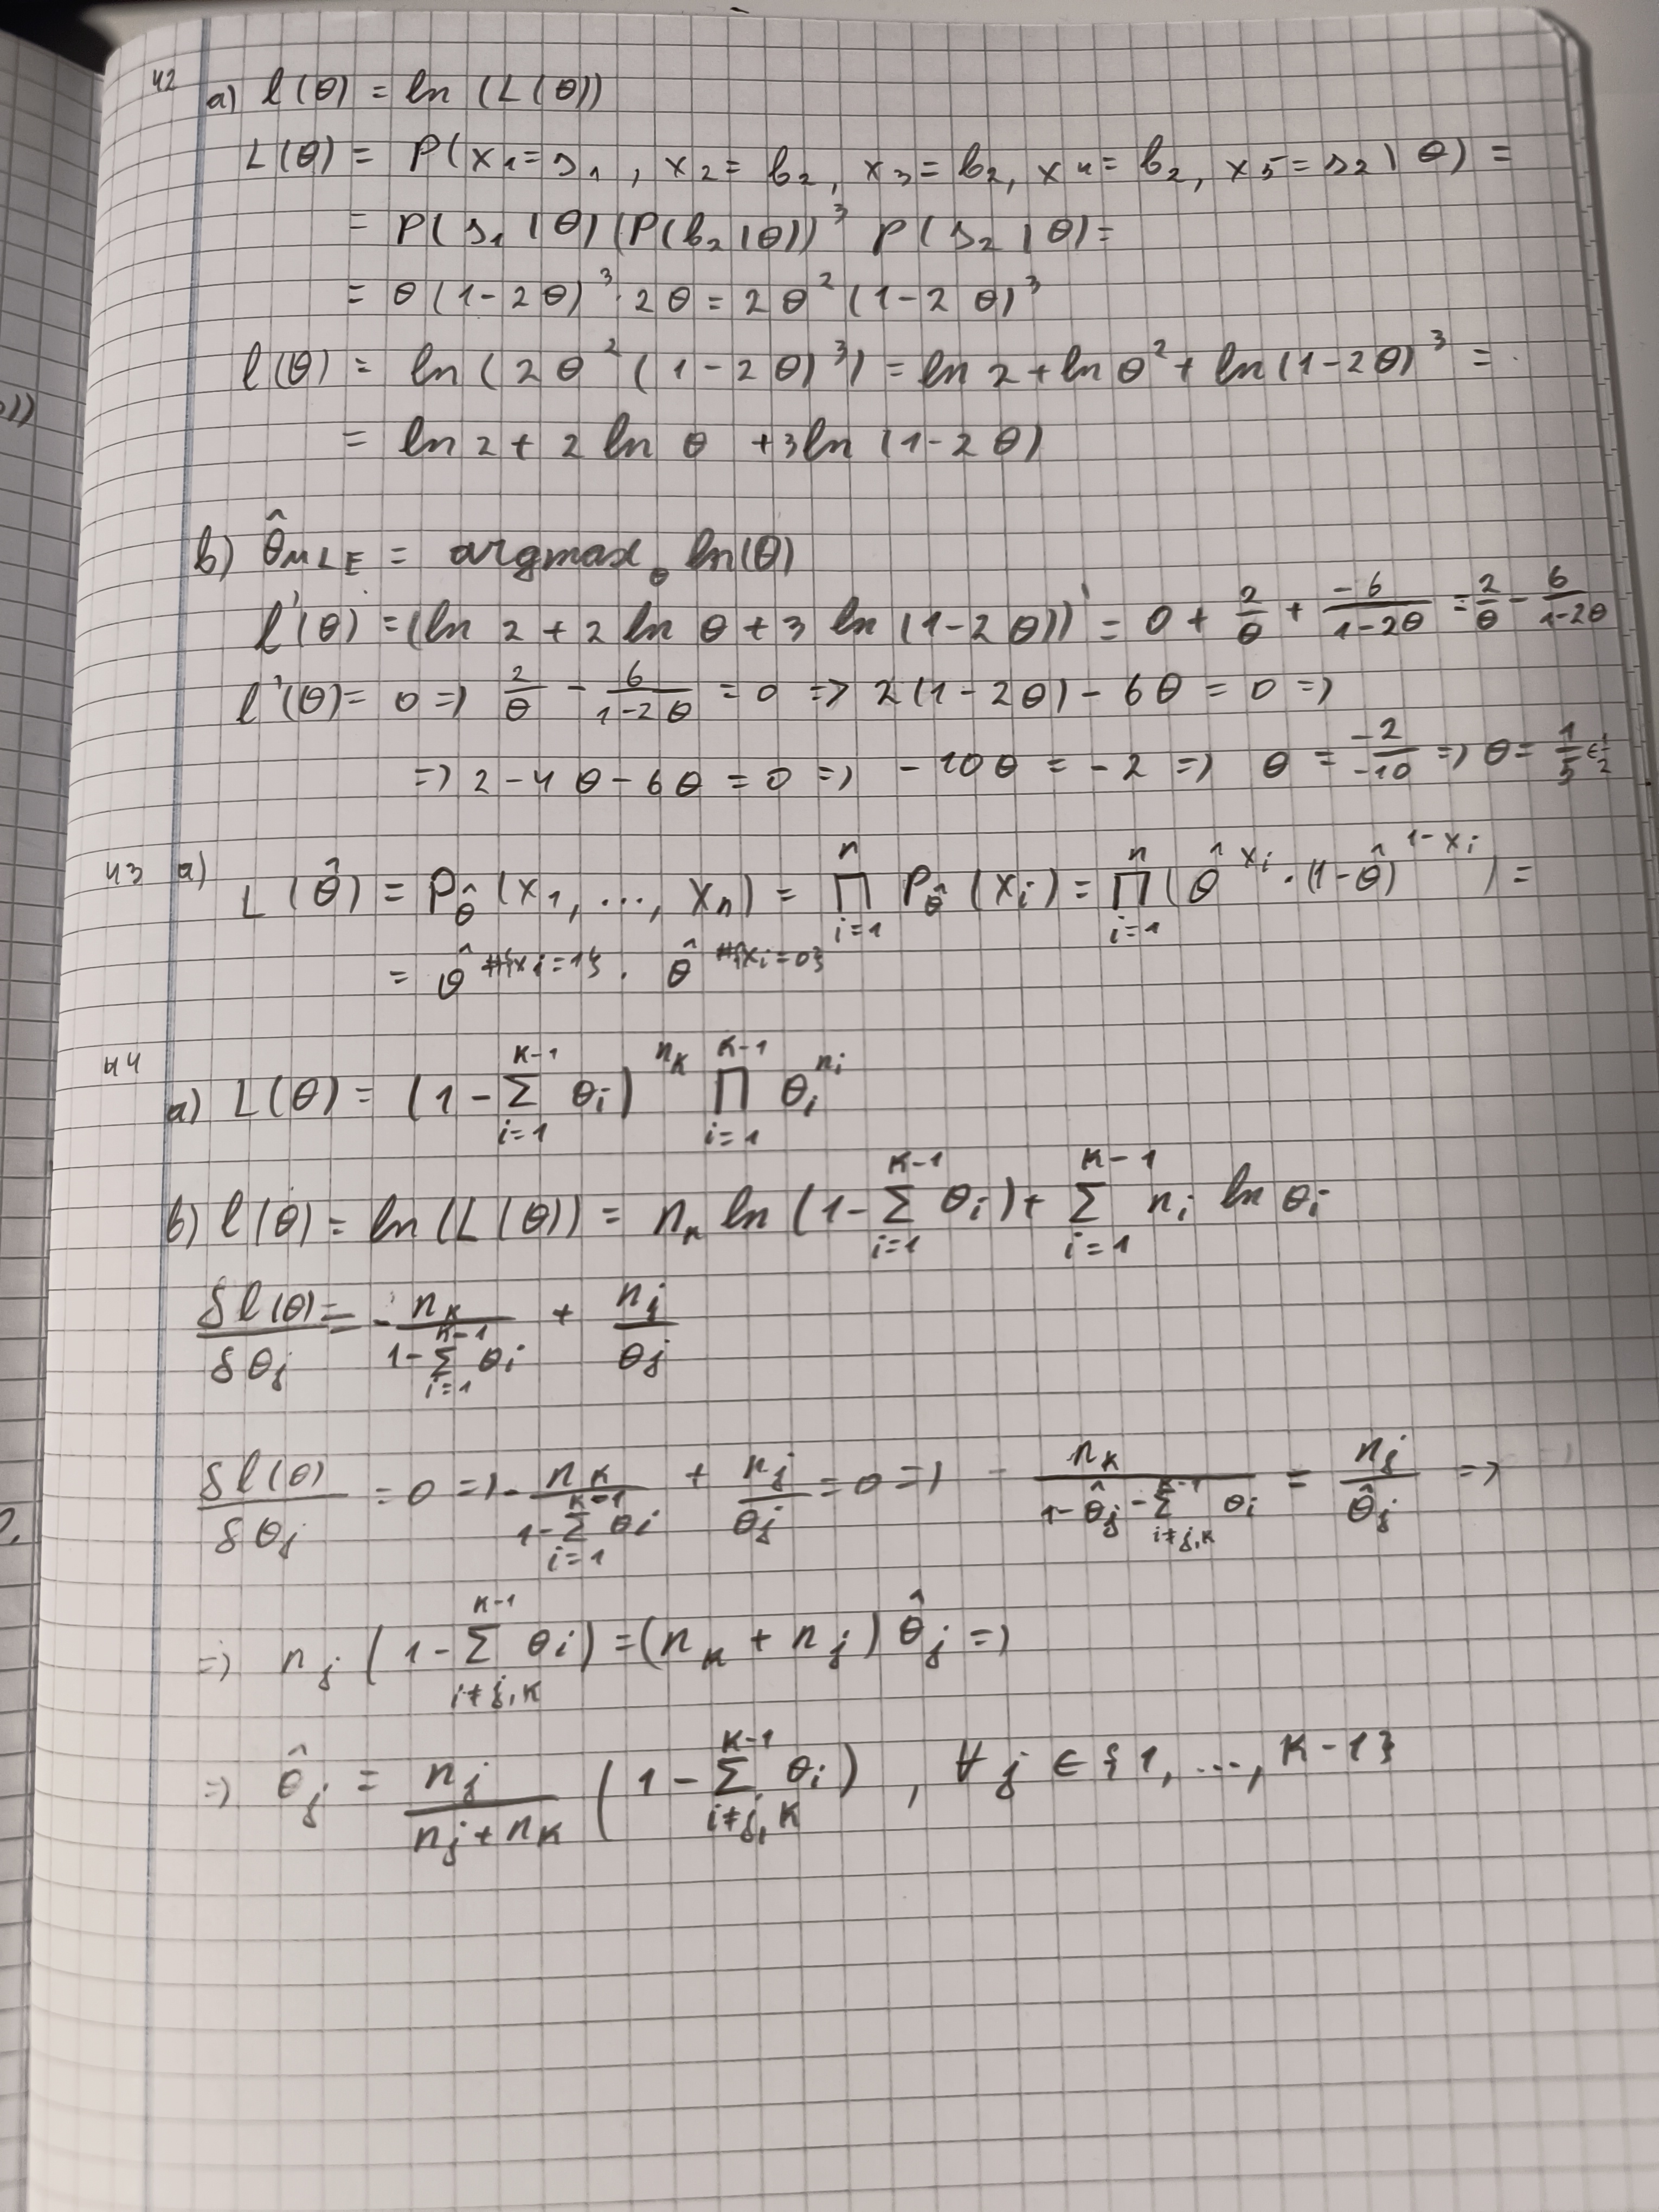 42 a) l(θ) = ln (L(θ))
L(θ) = P(x₁=s₁, x₂=b₂, x₃=b₂, x₄=b₂, x₅=s₂|θ) =
= P(s₁|θ)(P(b₂|θ))³ P(s₂|θ) =
= θ(1-2θ)³·2θ = 2θ²(1-2θ)³
l(θ) = ln(2θ²(1-2θ)³) = ln 2 + ln θ² + ln(1-2θ)³ =
= ln 2 + 2 ln θ + 3 ln (1-2θ)
b) θ̂_MLE = argmax_θ ln(θ)
l'(θ) = (ln 2 + 2 ln θ + 3 ln (1-2θ))' = 0 + 2/θ + -6/(1-2θ) = 2/θ - 6/(1-2θ)
l'(θ) = 0 => 2/θ - 6/(1-2θ) = 0 => 2(1-2θ) - 6θ = 0 =>
=> 2 - 4θ - 6θ = 0 => -10θ = -2 => θ = -2/-10 => θ = 1/5
43 a) L(θ̂) = P_θ̂(x₁, ..., xₙ) = ∏_{i=1}^{n} P_θ̂(xᵢ) = ∏_{i=1}^{n} (θ̂^{xᵢ}·(1-θ̂)^{1-xᵢ}) =
= θ̂^{#{xᵢ=1}} · θ̂^{#{xᵢ=0}}
44
a) L(θ) = (1 - ∑_{i=1}^{K-1} θᵢ)^{n_K} ∏_{i=1}^{K-1} θᵢ^{nᵢ}
b) l(θ) = ln(L(θ)) = n_K ln (1 - ∑_{i=1}^{K-1} θᵢ) + ∑_{i=1}^{K-1} nᵢ ln θᵢ
δl(θ)/δθⱼ = - n_K/(1 - ∑_{i=1}^{K-1} θᵢ) + nⱼ/θⱼ
δl(θ)/δθⱼ = 0 => - n_K/(1 - ∑_{i=1}^{K-1} θᵢ) + nⱼ/θⱼ = 0 => - n_K/(1 - θ̂ⱼ - ∑_{i≠j,K}^{K-1} θᵢ) = nⱼ/θ̂ⱼ =>
=> nⱼ (1 - ∑_{i≠j,K}^{K-1} θᵢ) = (n_K + nⱼ) θ̂ⱼ =>
=> θ̂ⱼ = nⱼ/(nⱼ + n_K) (1 - ∑_{i≠j,K}^{K-1} θᵢ), ∀ j ∈ {1, ..., K-1}